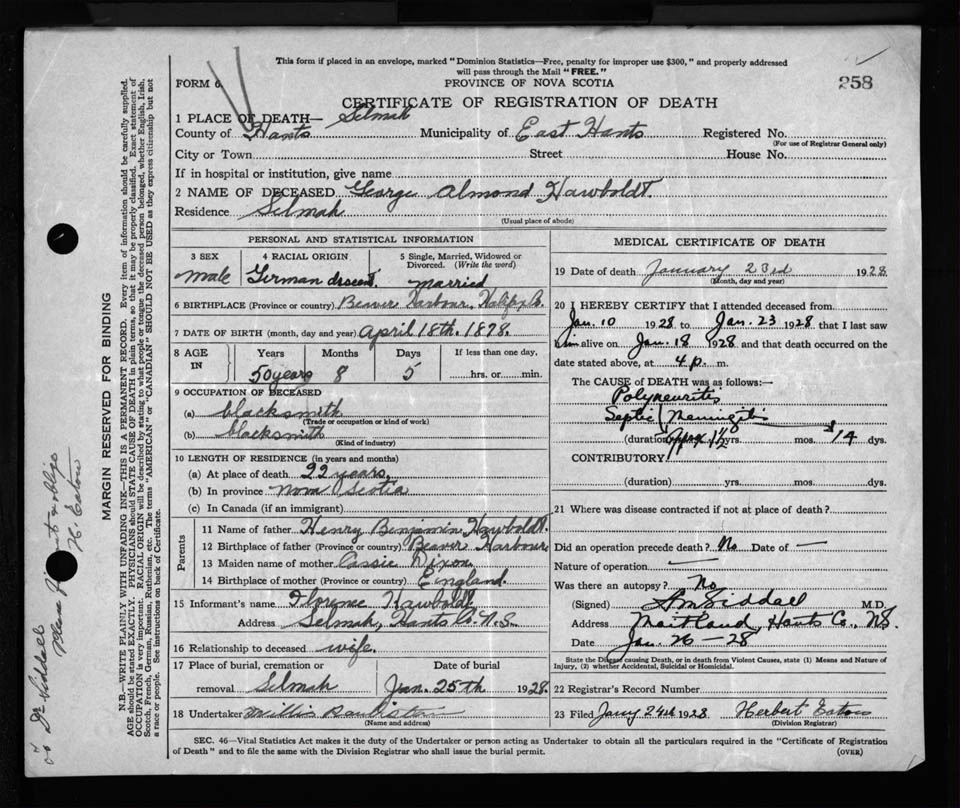 This form if placed in an envelope, marked "Dominion Statistics—Free, penalty for improper use $300," and properly addressed
will pass through the Mail "FREE."
FORM 6
PROVINCE OF NOVA SCOTIA
258
CERTIFICATE OF REGISTRATION OF DEATH
1 PLACE OF DEATH— Selmah
County of Hants Municipality of East Hants Registered No.
(For use of Registrar General only)
City or Town Street House No.
If in hospital or institution, give name
2 NAME OF DECEASED George Almond Hawboldt.
Residence Selmah
(Usual place of abode)
PERSONAL AND STATISTICAL INFORMATION
3 SEX
male
4 RACIAL ORIGIN
German descent.
5 Single, Married, Widowed or
Divorced. (Write the word)
married
6 BIRTHPLACE (Province or country) Beaver Harbour, Halifax Co.
7 DATE OF BIRTH (month, day and year) April 18th. 1878.
8 AGE
IN
Years Months Days If less than one day,
50 years 8 5 hrs. or min.
9 OCCUPATION OF DECEASED
(a) blacksmith
(Trade or occupation or kind of work)
(b) blacksmith
(Kind of industry)
10 LENGTH OF RESIDENCE (in years and months)
(a) At place of death 22 years
(b) In province nova Scotia
(c) In Canada (if an immigrant)
Parents
11 Name of father Henry Benjamin Hawboldt.
12 Birthplace of father (Province or country) Beaver Harbour
13 Maiden name of mother Cassie Dixon
14 Birthplace of mother (Province or country) England.
15 Informant's name Florence Hawboldt
Address Selmah, Hants Co. N.S.
16 Relationship to deceased wife.
17 Place of burial, cremation or Date of burial
removal Selmah Jan. 25th 1928.
18 Undertaker Willis
(Name and address)
MEDICAL CERTIFICATE OF DEATH
19 Date of death January 23rd 1928
(Month, day and year)
20 I HEREBY CERTIFY that I attended deceased from
Jan. 10 1928 to Jan. 23 1928 that I last saw
him alive on Jan. 18 1928 and that death occurred on the
date stated above, at 4 p. m.
The CAUSE of DEATH was as follows:—
Polyneuritis
Septic Meningitis
(duration) Approx. 1½ yrs. mos. 14 dys.
CONTRIBUTORY
(duration) yrs. mos. dys.
21 Where was disease contracted if not at place of death?
Did an operation precede death? No Date of —
Nature of operation —
Was there an autopsy? No
(Signed) Siddall M.D.
Address Maitland, Hants Co., NS.
Date Jan. 26 — 28
State the Disease causing Death, or in death from Violent Causes, state (1) Means and Nature of
Injury, (2) whether Accidental, Suicidal or Homicidal.
22 Registrar's Record Number
23 Filed Jany 24th 1928 Herbert Eaton
(Division Registrar)
SEC. 46—Vital Statistics Act makes it the duty of the Undertaker or person acting as Undertaker to obtain all the particulars required in the "Certificate of Registration
of Death" and to file the same with the Division Registrar who shall issue the burial permit.
(OVER)
MARGIN RESERVED FOR BINDING
N.B.—WRITE PLAINLY WITH UNFADING INK—THIS IS A PERMANENT RECORD. Every item of information should be carefully supplied.
AGE should be stated EXACTLY. PHYSICIANS should STATE CAUSE OF DEATH in plain terms, so that it may be properly classified. Exact statement of
OCCUPATION is very important. RACIAL ORIGIN will be described by stating to what people or tongue the deceased person belonged, whether English, Irish,
Scotch, French, German, Russian, Ruthenian, etc. The terms "AMERICAN" or "CANADIAN" SHOULD NOT BE USED as they express citizenship but not
a race or people. See instructions on back of Certificate.
Dr Siddall
Please & oblige
H. Eaton